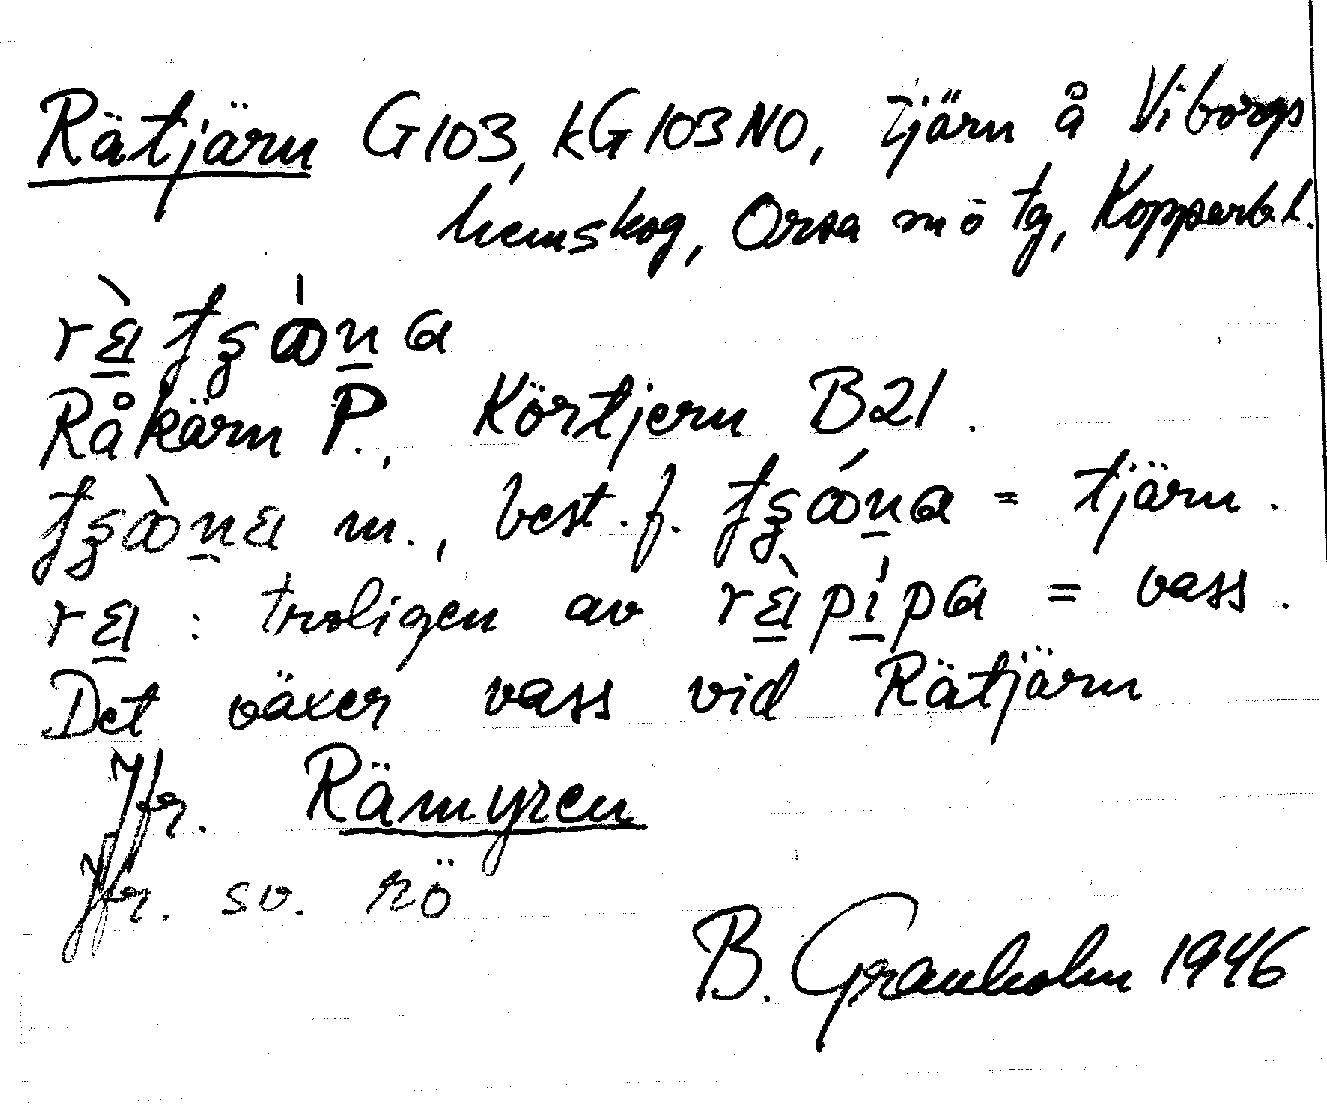 Rätjärn G103, kG103NO, tjärn å Viborgs
hemskog, Orsa m o tg, Kopparb.l.
Råkärn P., Körtjern B21.
m., best. f. = tjärn.
: troligen av = vass.
Det växer vass vid Rätjärn
Jfr. Rämyren
Jfr. sv. rö
B. Granholm 1946